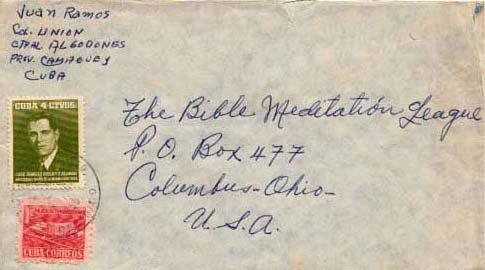 Juan Ramos
Col. UNION
CTRAL ALGODONES
PROV. CAMAGUEY
CUBA
The Bible Meditation League
P. O. Box 477
Columbus-Ohio-
U.S.A.
CUBA 4 CTVOS.
1
CUBA-CORREOS